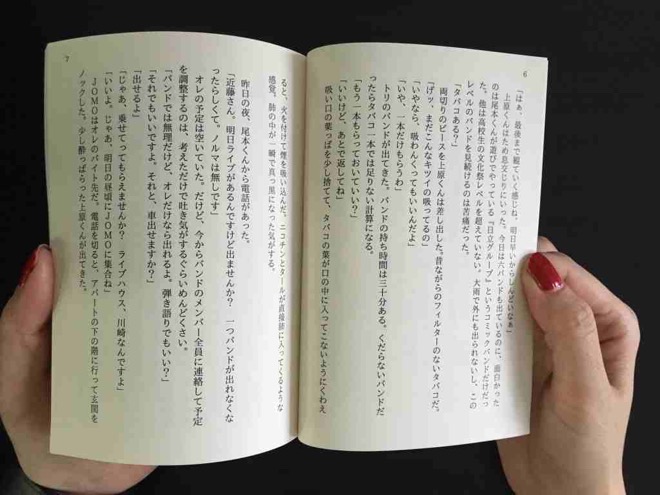 6
「はぁ、最後まで観ていく感じね。明日早いからしんどいなぁ」
上原くんはため息交じりにいった。今日は六バンドも出ているのに、面白かった
のは尾本くんが遊びでやっている「日立グループ」というコミックバンドだけだっ
た。他は高校生の文化祭レベルを超えていない。大雨で外にも出られないし、この
レベルのバンドを見続けるのは苦痛だった。
「タバコある？」
両切りのピースを上原くんは差し出した。昔ながらのフィルターのないタバコだ。
「げッ、まだこんなキツイの吸ってるの」
「いやなら、吸わんくってもいいんだよ」
「いや、一本だけもらうわ」
トリのバンドが出てきた。バンドの持ち時間は三十分ある。くだらないバンドだ
ったらタバコ一本では足りない計算になる。
「もう一本もらっておいていい？」
「いいけど、あとで返してね」
吸い口の葉っぱを少し捨てて、タバコの葉が口の中に入ってこないようにくわえ
7
ると、火を付けて煙を吸い込んだ。ニコチンとタールが直接肺に入ってくるような
感覚。肺の中が一瞬で真っ黒になった気がする。
昨日の夜、尾本くんから電話があった。
「近藤さん、明日ライブがあるんですけど出ませんか？　一つバンドが出れなくな
ったらしくて。ノルマは無しです」
オレの予定は空いていた。だけど、今からバンドのメンバー全員に連絡して予定
を調整するのは、考えただけで吐き気がするぐらいめんどくさい。
「バンドでは無理だけど、オレだけなら出れるよ。弾き語りでもいい？」
「それでもいいですよ。それと、車出せますか？」
「出せるよ」
「じゃあ、乗せてってもらえませんか？　ライブハウス、川崎なんですよ」
「いいよ。じゃあ、明日の昼頃にＪＯＭＯに集合ね」
ＪＯＭＯはオレのバイト先だ。電話を切ると、アパートの下の階に行って玄関を
ノックした。少し酔っぱらった上原くんが出てきた。